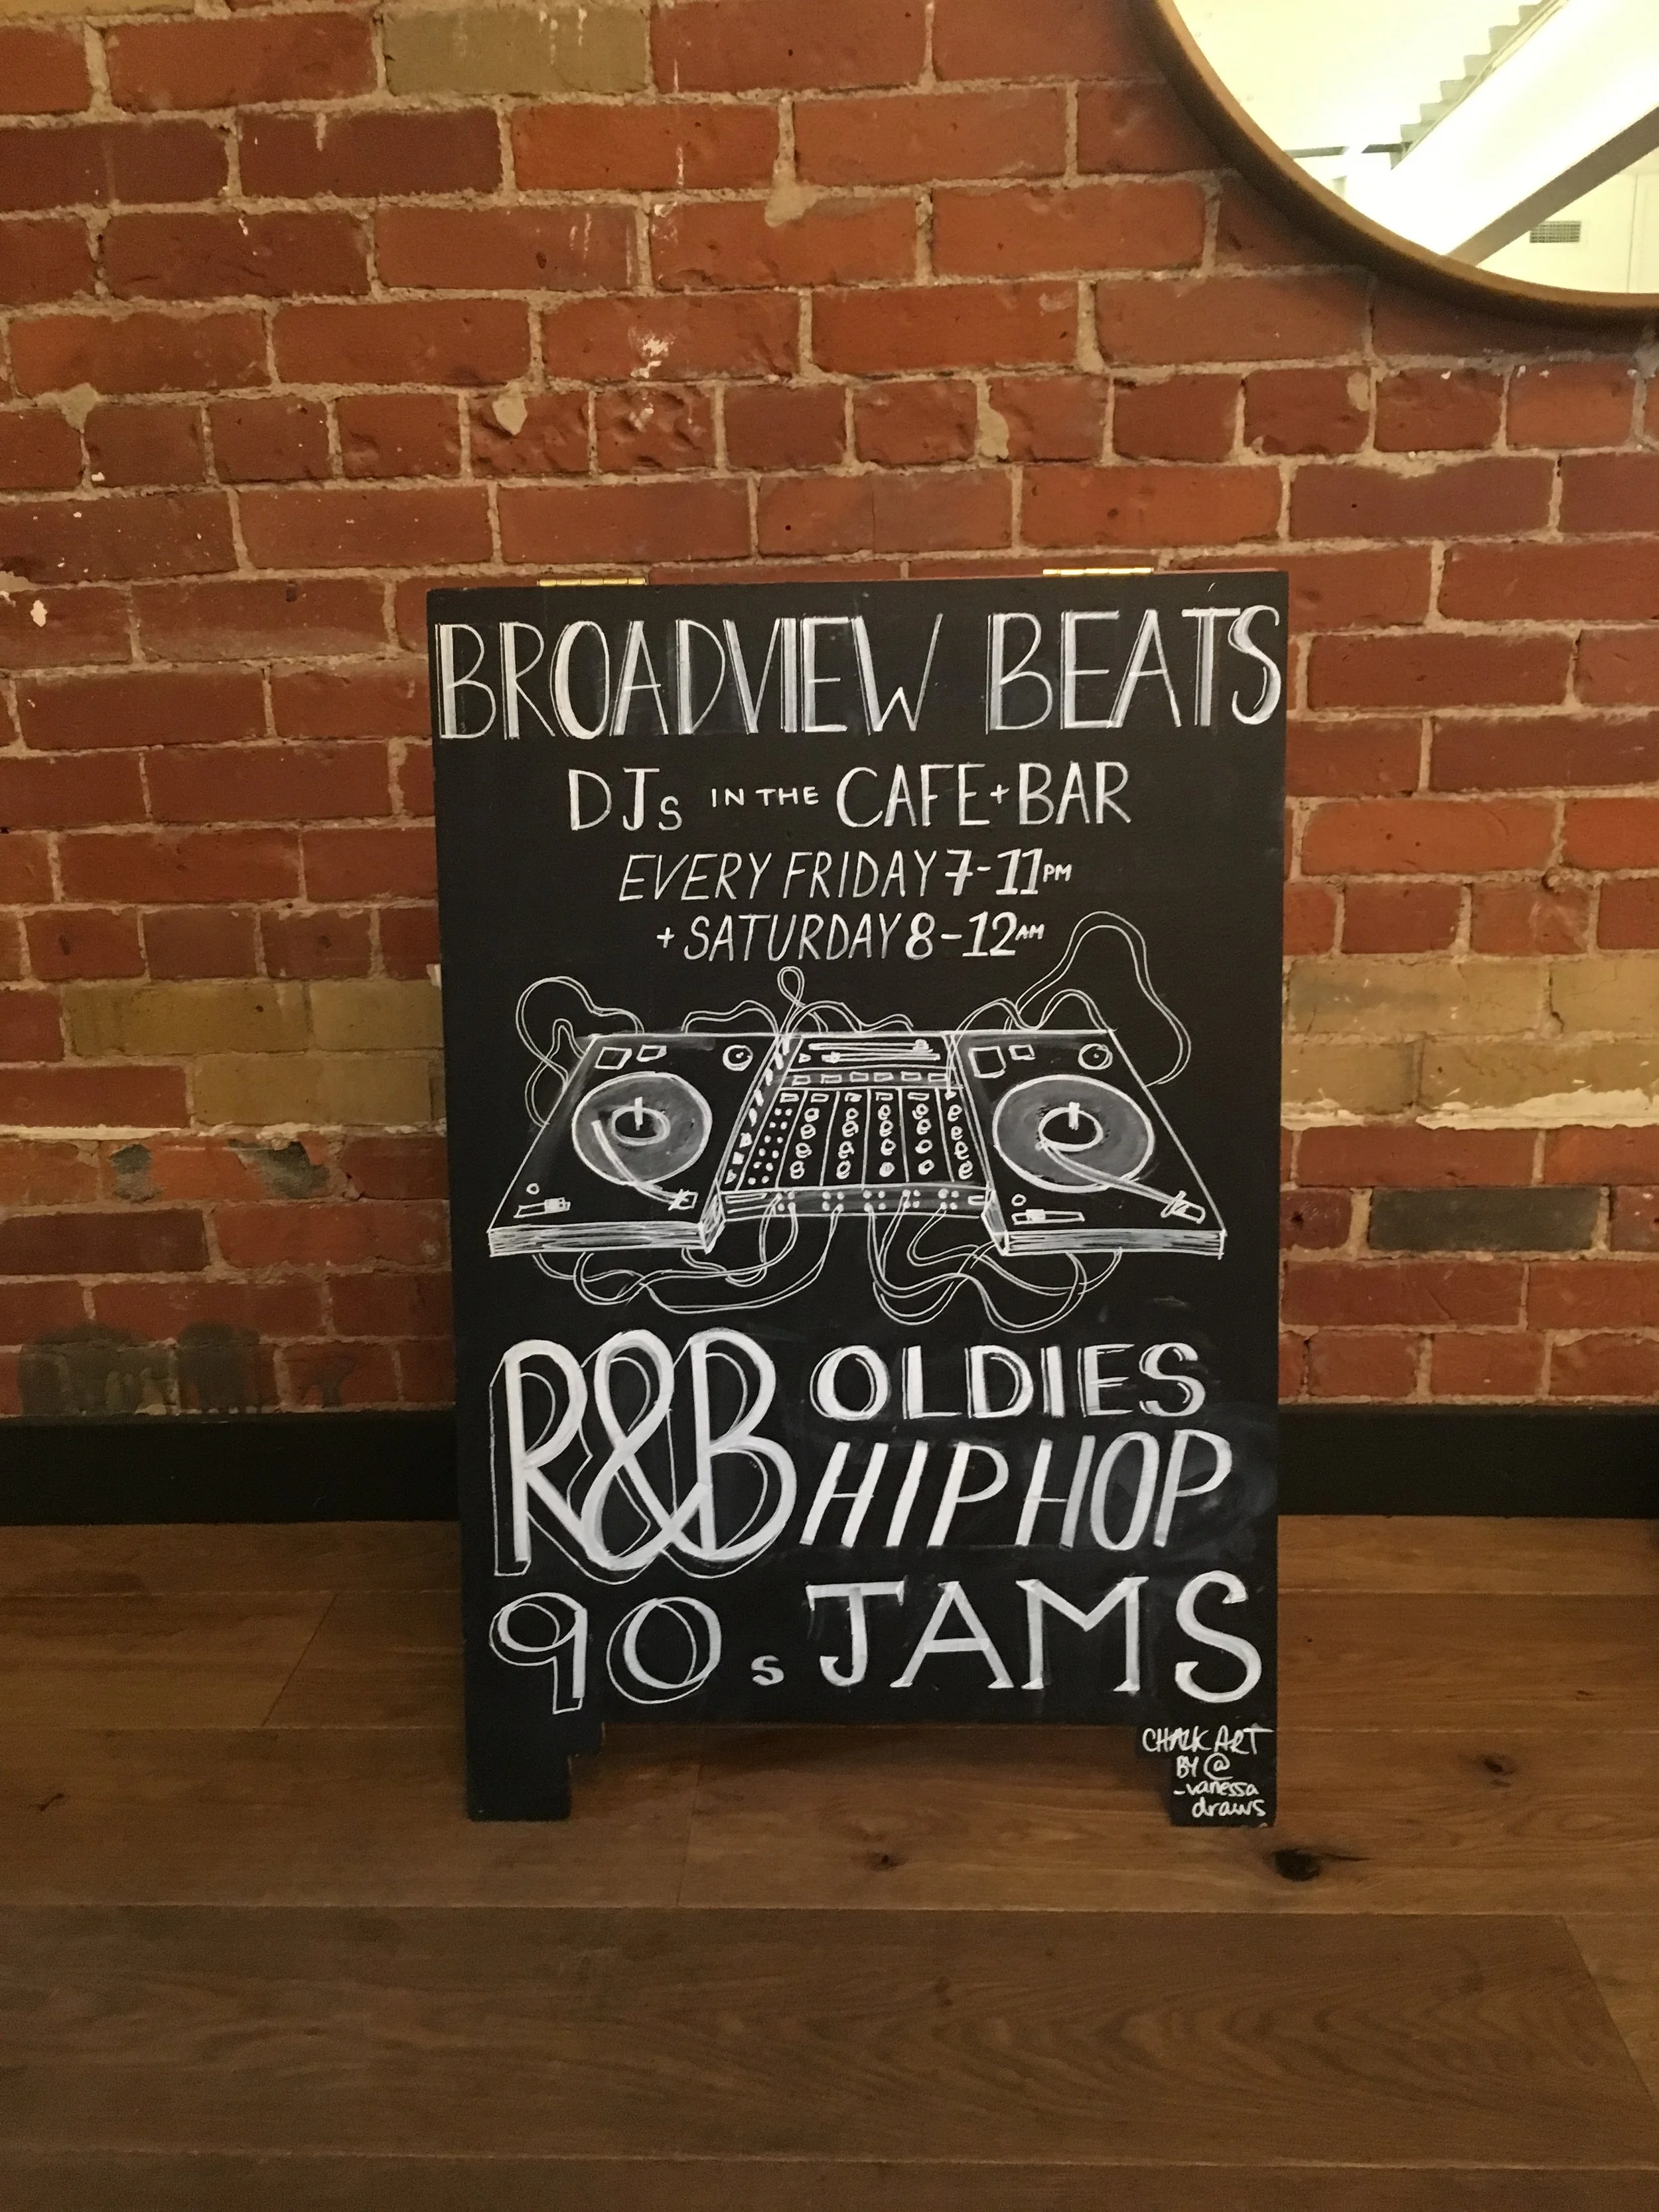 BROADVIEW BEATS
DJs IN THE CAFE + BAR
EVERY FRIDAY 7-11PM
+ SATURDAY 8-12AM
R&B OLDIES
HIPHOP
90s JAMS
CHALK ART
BY @
_vanessa
draws